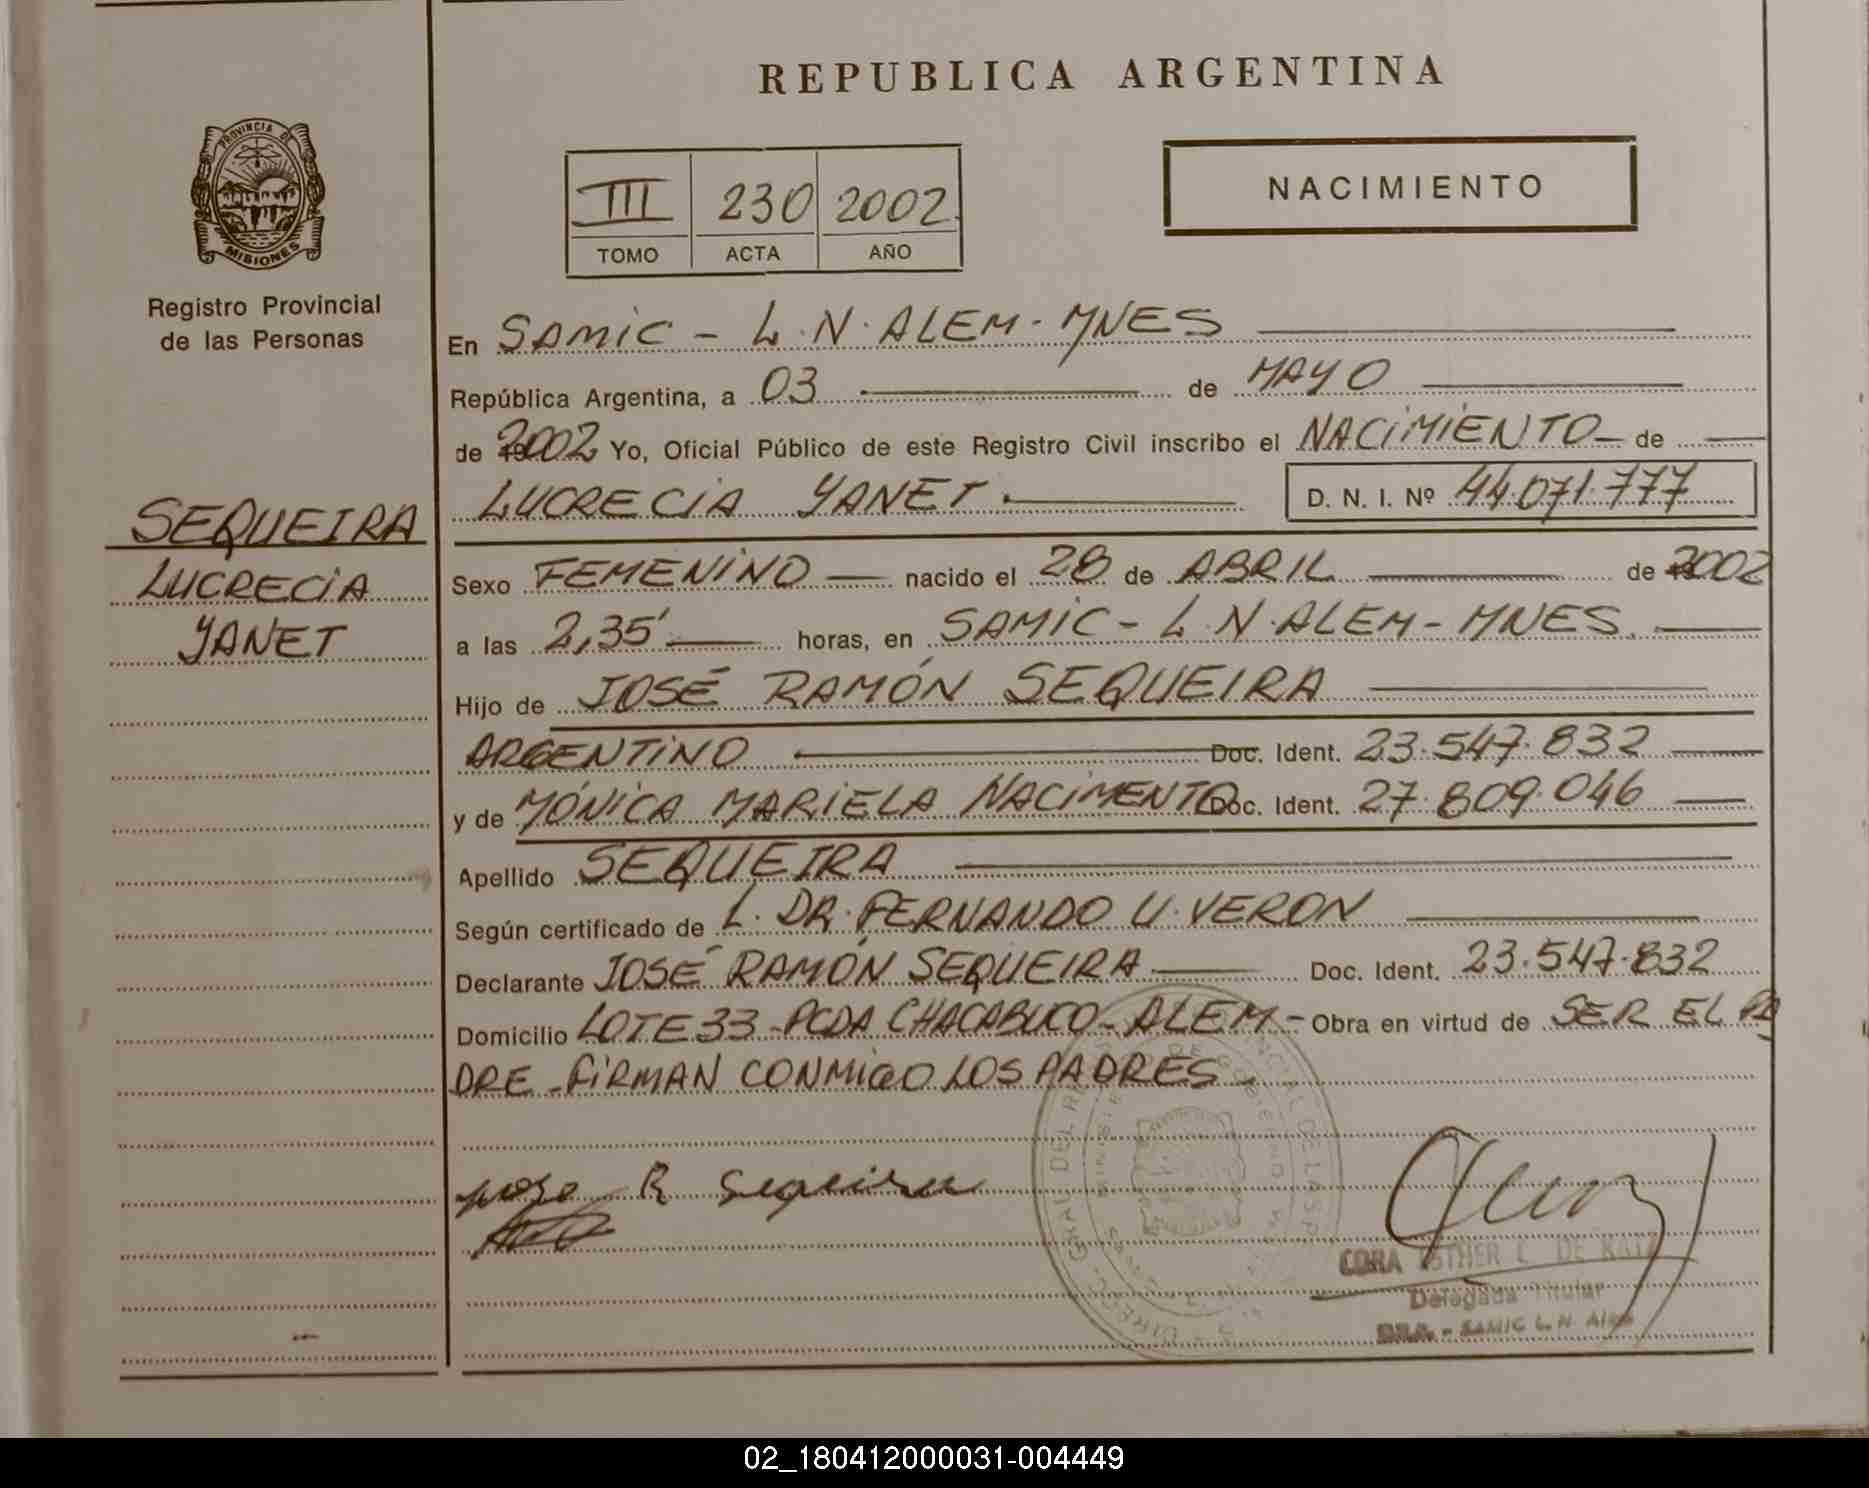 REPUBLICA ARGENTINA
PROVINCIA DE
MISIONES
Registro Provincial
de las Personas
III 230 2002
TOMO ACTA AÑO
NACIMIENTO
SEQUEIRA
LUCRECIA
YANET
En SAMIC - L.N. ALEM - MNES
República Argentina, a 03 de MAYO
de 2002 Yo, Oficial Público de este Registro Civil inscribo el NACIMIENTO de
LUCRECIA YANET. D. N. I. Nº 44.071.777
Sexo FEMENINO nacido el 28 de ABRIL de 2002
a las 2,35' horas, en SAMIC - L.N. ALEM - MNES.
Hijo de JOSÉ RAMÓN SEQUEIRA
ARGENTINO Doc. Ident. 23.547.832
y de MÓNICA MARIELA NACIMENTO Doc. Ident. 27.809.046
Apellido SEQUEIRA
Según certificado de L. DR. FERNANDO U. VERON
Declarante JOSÉ RAMÓN SEQUEIRA Doc. Ident. 23.547.832
Domicilio LOTE 33 - PCDA CHACABUCO - ALEM - Obra en virtud de SER EL PA
DRE - FIRMAN CONMIGO LOS PADRES -
R Sequeira
CORA ESTHER C. DE
Delegada Titular
SAMIC L.N.
02_180412000031-004449